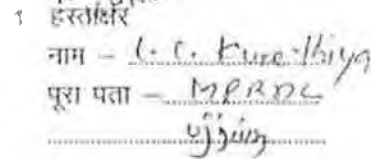 हस्ताक्षर
नाम - C. C. Kure-thiya
पूरा पता - MPRDC
Ujjain